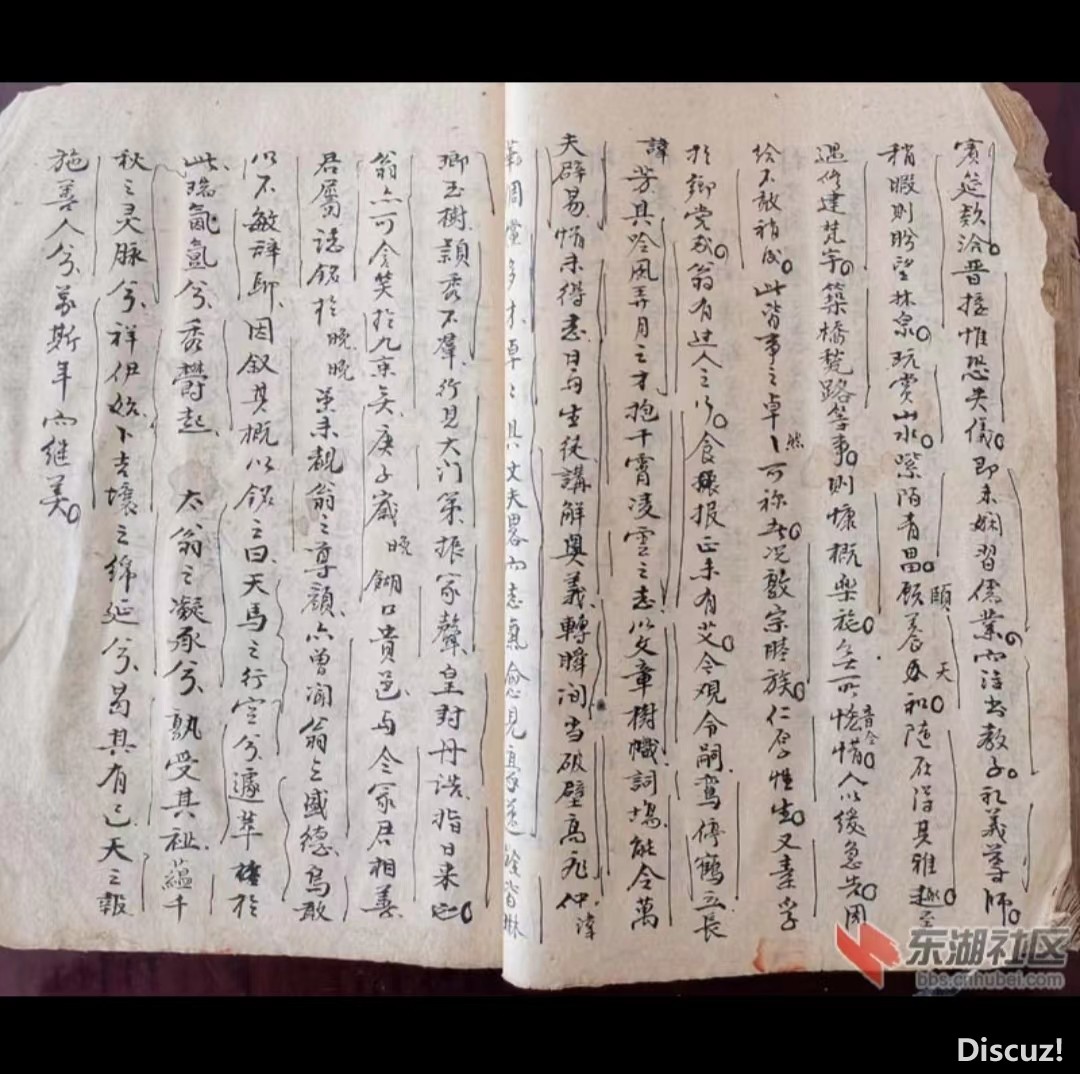 賓筵款洽晋接惟恐失儀即未嫻習儒業而注出教子礼義尊師
稍暇則盼望林泉玩賞山水縈陌青田頤養天和随在得其雅趣至
過修建梵宇築橋甃路等事則慷概樂施無所恡惜音令人以緩急告周
给不敢稍後此皆事之卓卓然可称者况敦宗睦族仁厚性生又素孚
於鄉党哉翁有过人之行食报正未有艾今观令嗣鸞停鶴立長
諱芳其吟風弄月之才抱干霄凌雲之志以文章樹幟詞場能令萬
夫辟易惜未得志日与生徒講解奥義轉瞬间当破壁高飛仲諱
周堂多才卓卓具丈夫畧而志氣愈見 皆琳
瑯玉樹顕秀不羣行見大门第振家聲皇封丹誥指日来也
翁亦可含笑於九京矣庚子歲晚餬口貴邑与令冢君相善
君屬誌銘於晚晚虽未覩翁之尊顔亦曾闻翁之盛德焉敢
以不敏辞耶因叙其概以銘之曰天馬之行空兮遽萃於
此瑞氣氤氲兮秀鬱起太翁之凝承兮孰受其祉蕴千
秋之灵脉兮祥伊始卜吉壤之绵延兮曷其有已天之報
施善人兮於斯年而继美
东湖社区
bbs.cnhubei.com
Discuz!